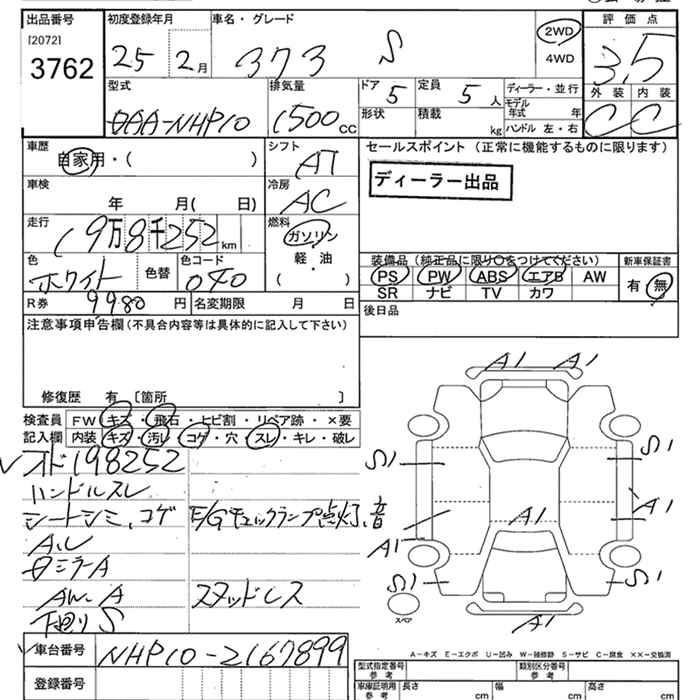 出品番号 初度登録年月 車名・グレード 評価点
[2072] 3762 25 2月 373 S 2WD 4WD 3.5
外装 内装 C C
型式 排気量 ドア 定員 ディーラー・並行
DAA-NHP10 1500cc 5 5人
形状 積載 kg モデル年式 年 ハンドル 左・右
車歴 自家用・( ) シフト AT セールスポイント (正常に機能するものに限ります)
車検 年 月( 日) 冷房 AC ディーラー出品
走行 19万8千252km 燃料 ガソリン 軽・油 ( )
色 ホワイト 色替 色コード 040
装備品(純正品に限り○をつけてください) 新車保証書
PS PW ABS エアB AW 有・無
SR ナビ TV カワ
R券 9980 円 名変期限 月 日 後日品
注意事項申告欄(不具合内容等は具体的に記入して下さい)
修復歴 有 [箇所 ]
検査員記入欄 FW キズ・飛石・ヒビ割・リペア跡・×要
内装 キズ・汚レ・コゲ・穴・スレ・キレ・破レ
オド198252
ハンドルスレ
シートシミ、コゲ E/Gチェックランプ点灯、音
スタッドレス
下廻りS
A1 A1
S1 S1
A1 A1 A1
S1 S1
スペア A1
車台番号 NHP10-2167899
登録番号
A-キズ E-エクボ U-凹み W-補修跡 S-サビ C-腐食 ××-交換済
型式指定番号 参考 類別区分番号 参考
車庫証明用 参考 長さ cm 幅 cm 高さ cm